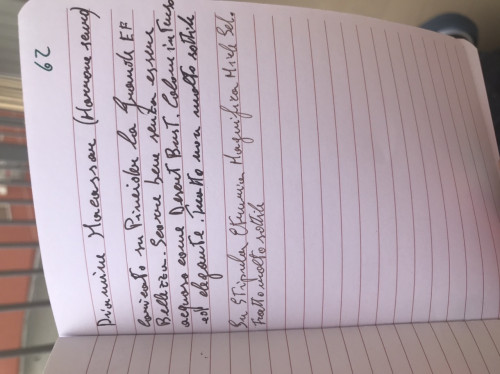 62
Diamine Macassar (Marrone scuro)
Caricato su Pineider La Grande EF
Bellezza. Scorre bene senza essere
acquoso come Desert Burst. Colore intenso
ed elegante. Tratto non molto sottile
Su Stipula Etruria Magnifica
tratto molto sottile